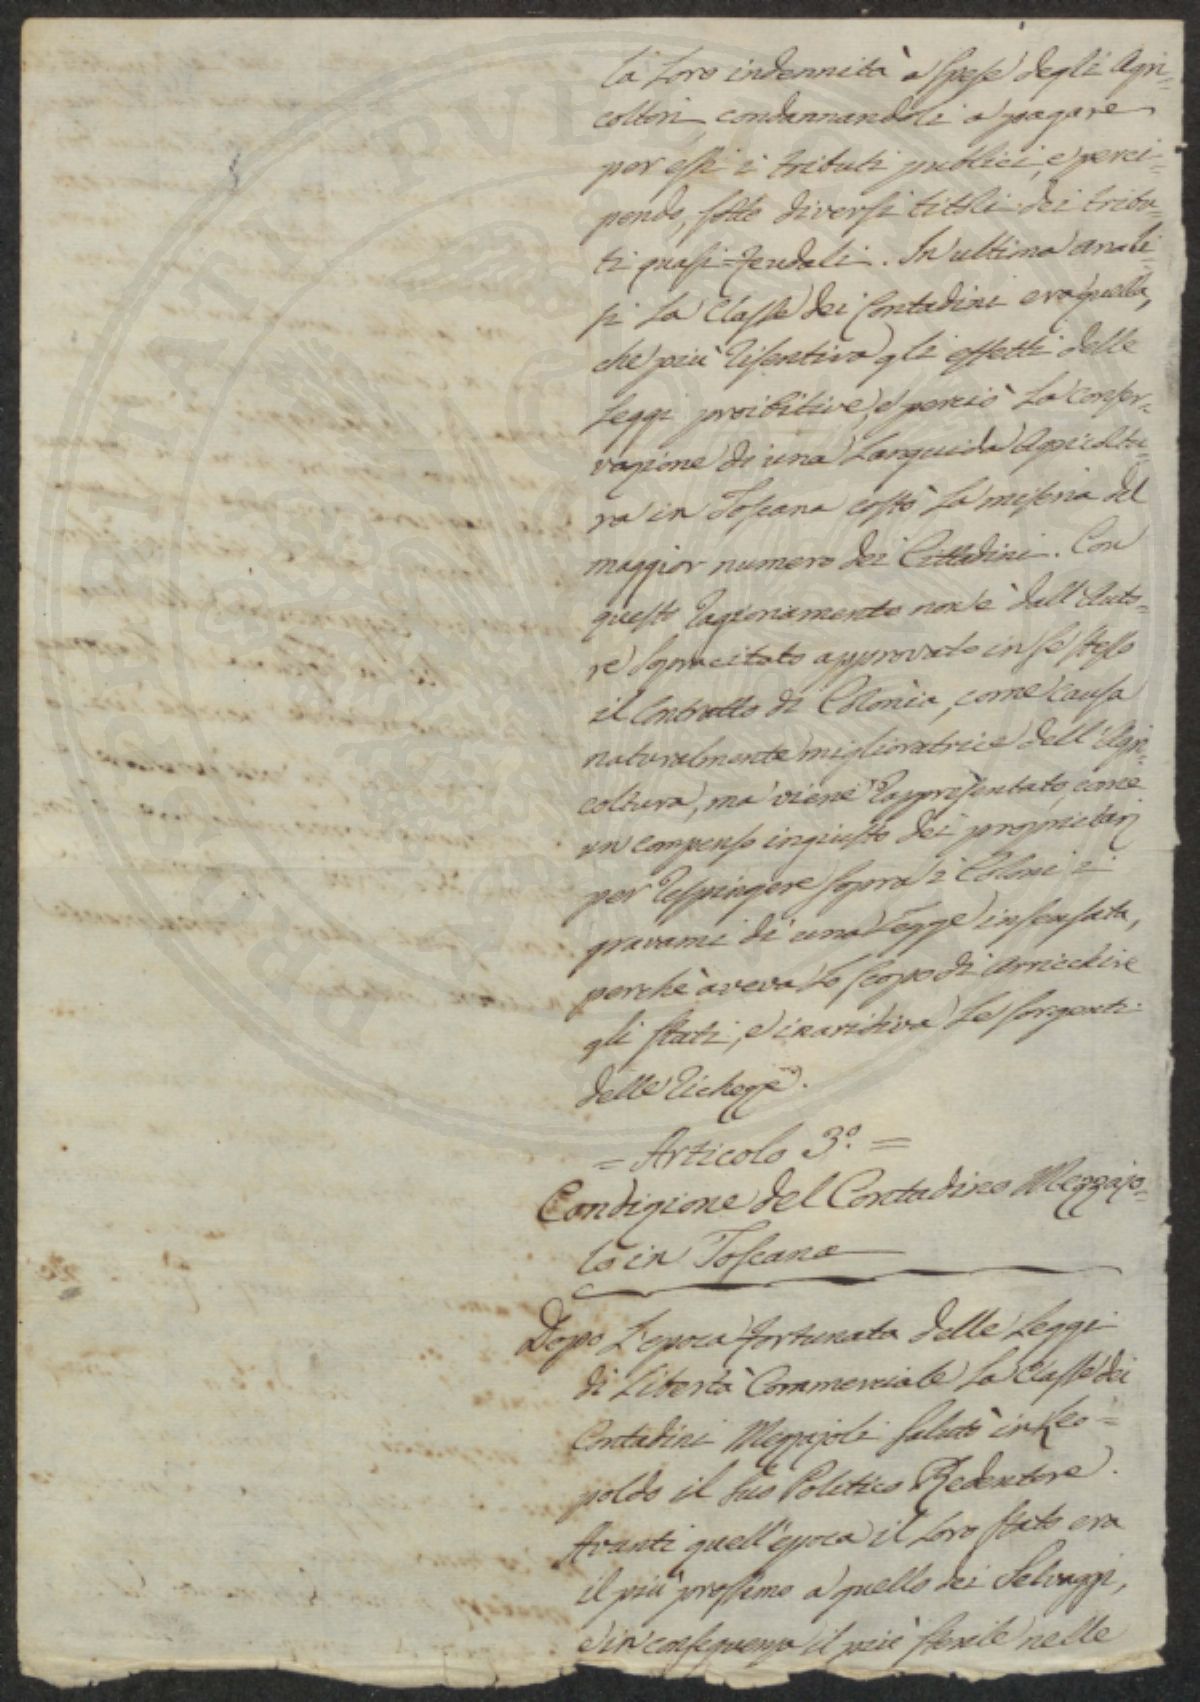 la loro indennità a spese degli Agri=
coltori, condannandoli a pagare
per essi i tributi publici, e perci=
pendo, sotto diversi titoli dei tribu=
ti quasi=feudali. In ultima anali=
si la Classe dei Contadini era quella,
che più risentiva gli effetti delle
Leggi proibitive, e perciò la conser=
vazione di una languida Agricoltu=
ra in Toscana costò la miseria del
maggior numero dei Cittadini. Con
questo ragionamento non è dall'Auto=
re sopracitato approvato in se stesso
il Contratto di Colonìa, come causa
naturalmente miglioratrice dell'Agri=
coltura, ma viene rappresentato, come
un compenso ingiusto dei proprietarj
per respingere sopra i Coloni i
gravami di una Legge insensata,
perchè aveva lo scopo di arricchire
gli stati, e inaridiva le sorgenti
delle ricchezze.
= Articolo 3.º =
Condizione del Contadino Mezzajo=
lo in Toscana
Dopo l'epoca fortunata delle Leggi
di Libertà Commerciale la Classe dei
Contadini Mezzajoli salutò in Leo=
poldo il suo Politico Redentore.
Avanti quell'epoca il loro stato era
il più prossimo a quello dei Selvaggi,
e in conseguenza il più sterile nelle